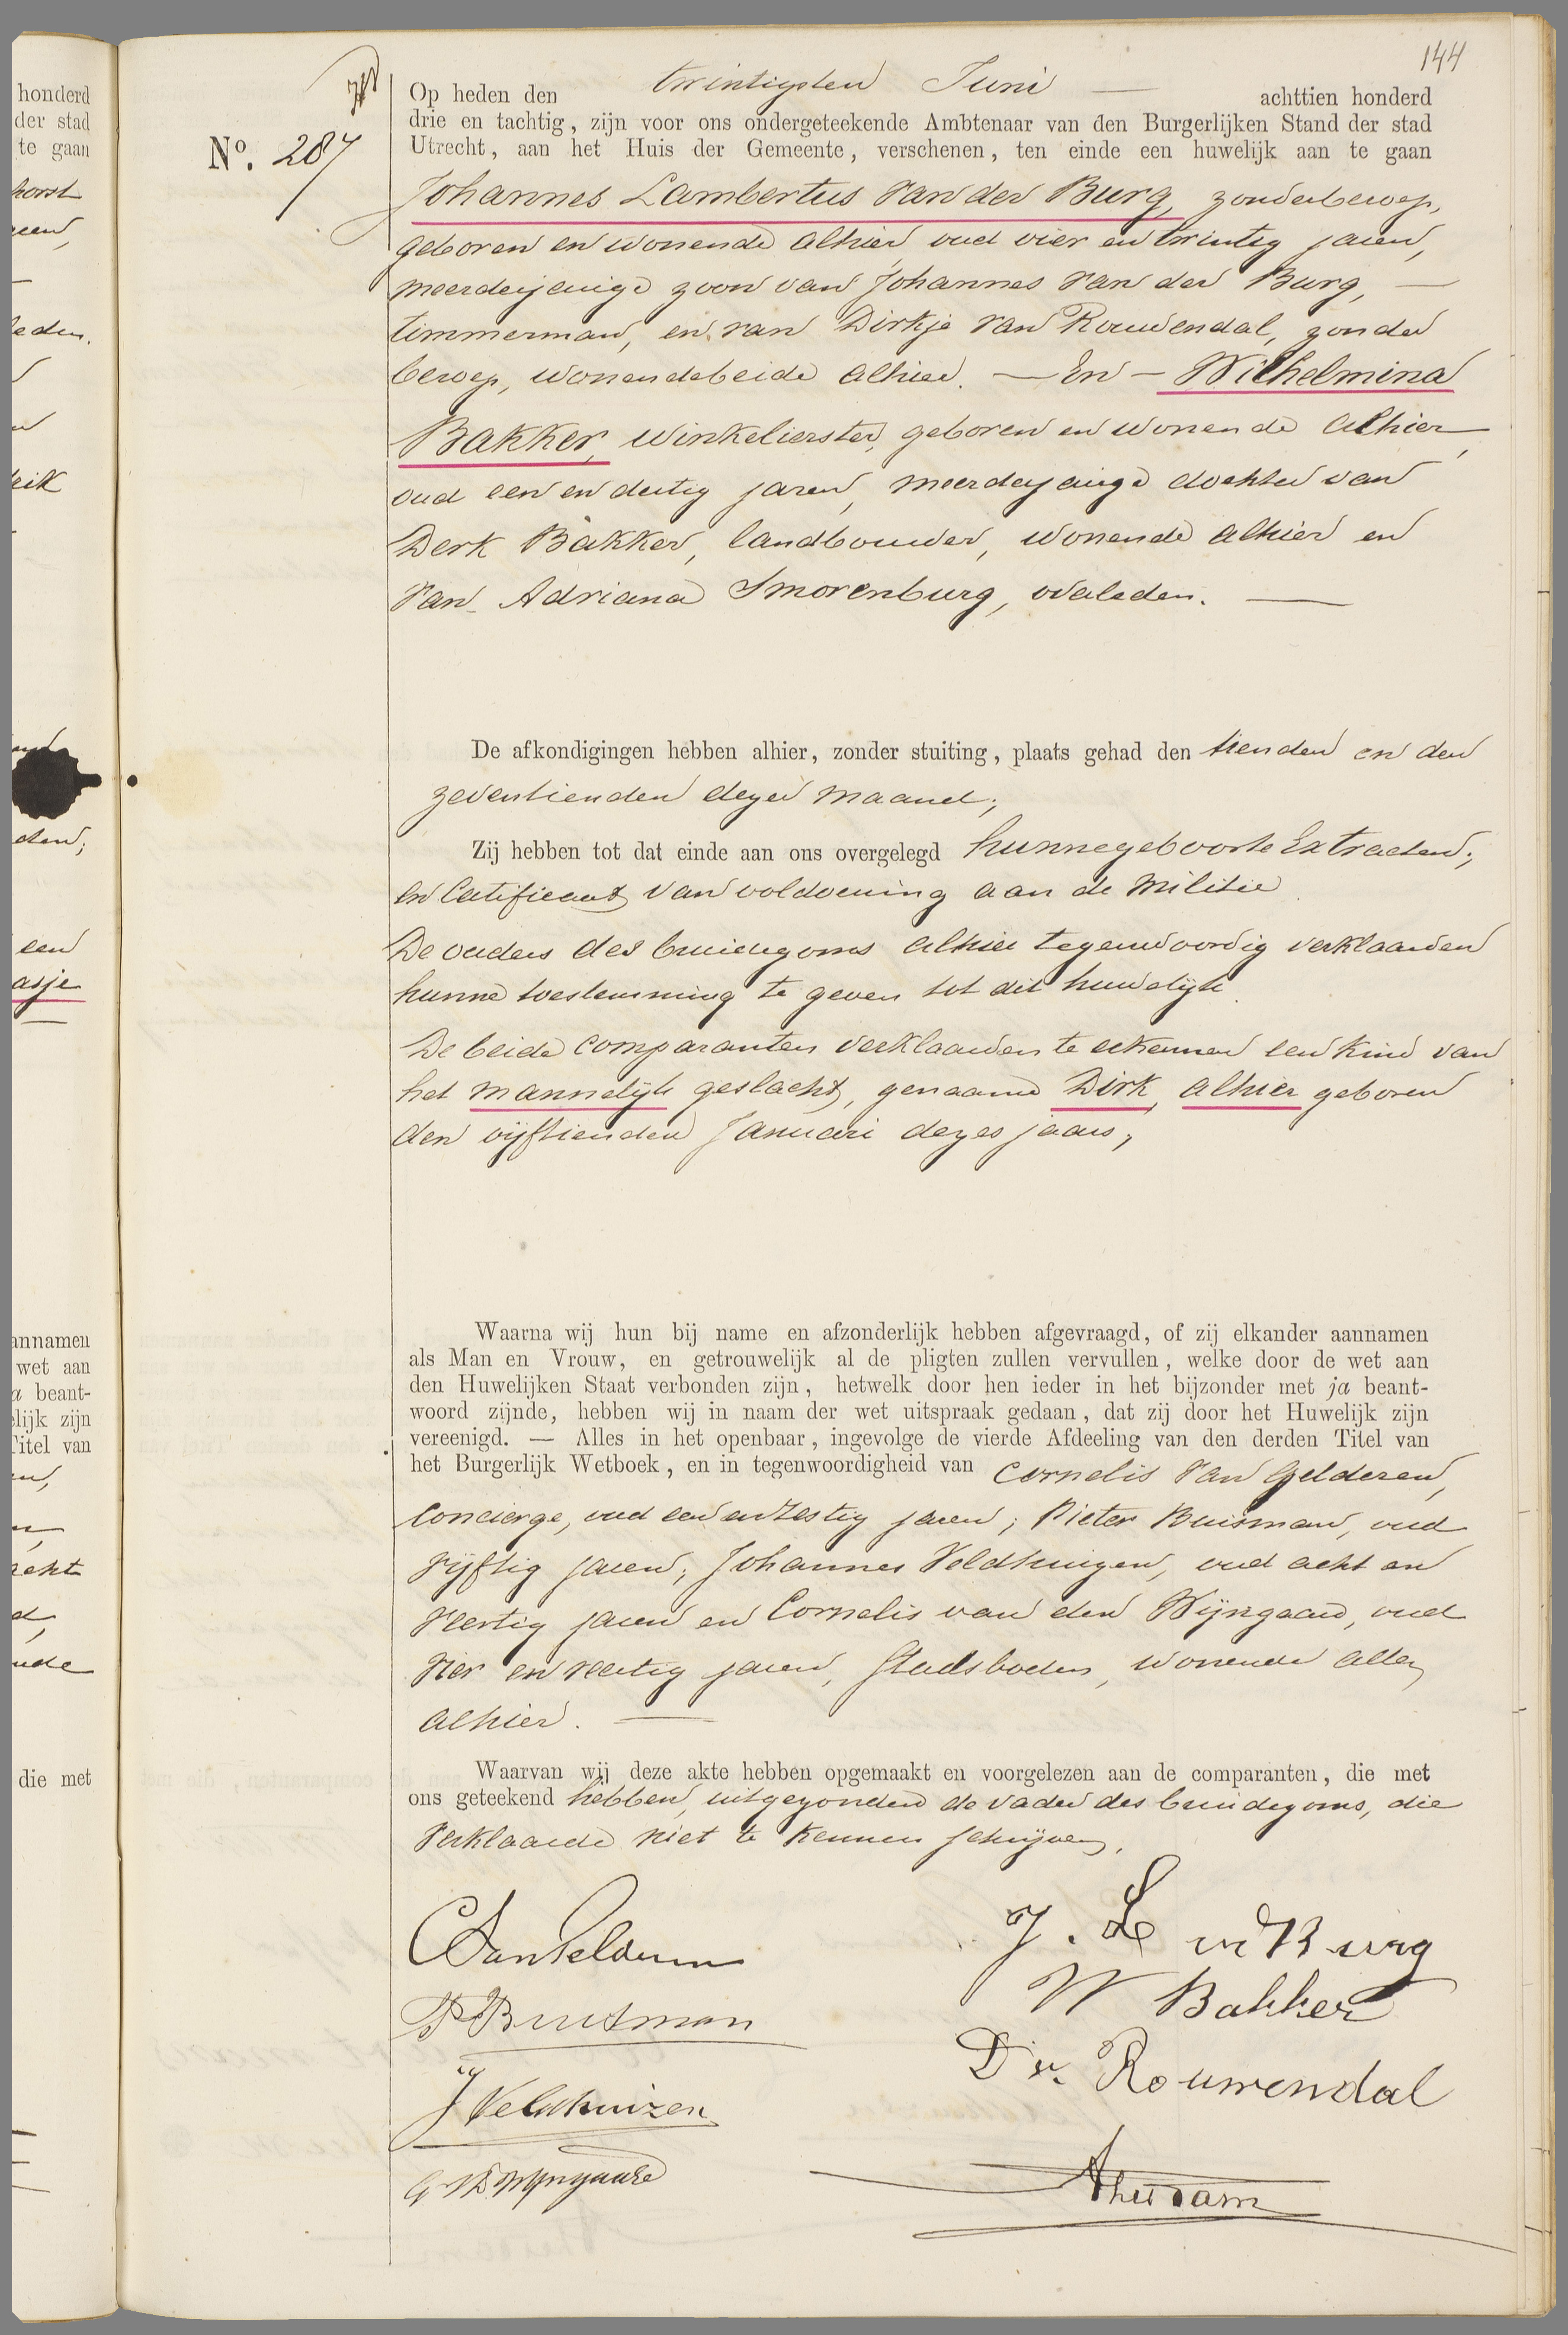 144
honderd
der stad
te gaan
horst
leden.
eik
een
asje
annamen
wet aan
a beant-
lijk zijn
Titel van
die met
No. 287
Op heden den twintigsten Juni — achttien honderd
drie en tachtig, zijn voor ons ondergeteekende Ambtenaar van den Burgerlijken Stand der stad
Utrecht, aan het Huis der Gemeente, verschenen, ten einde een huwelijk aan te gaan
Johannes Lambertus van der Burg, zonder beroep,
geboren en wonende alhier, oud vier en twintig jaren,
meerderjarige zoon van Johannes van der Burg, —
timmerman, en van Dirkje van Rouwendal, zonder
beroep, wonende beide alhier. — En — Wilhelmina
Bakker, winkelierster, geboren en wonende alhier,
oud een en dertig jaren, meerderjarige dochter van
Derk Bakker, landbouwer, wonende alhier en
van Adriana Smorenburg, overleden. —
De afkondigingen hebben alhier, zonder stuiting, plaats gehad den tienden en den
zeventienden dezer maand;
Zij hebben tot dat einde aan ons overgelegd hunne geboorte Extracten;
en Certificaat van voldoening aan de Militie.
De ouders des bruidegoms alhier tegenwoordig verklaarden
hunne toestemming te geven tot dit huwelijk.
De beide comparanten verklaarden te erkennen een kind van
het mannelijk geslacht, genaamd Dirk, alhier geboren
den vijftienden Januari dezes jaars,
Waarna wij hun bij name en afzonderlijk hebben afgevraagd, of zij elkander aannamen
als Man en Vrouw, en getrouwelijk al de pligten zullen vervullen, welke door de wet aan
den Huwelijken Staat verbonden zijn, hetwelk door hen ieder in het bijzonder met ja beant-
woord zijnde, hebben wij in naam der wet uitspraak gedaan, dat zij door het Huwelijk zijn
vereenigd. — Alles in het openbaar, ingevolge de vierde Afdeeling van den derden Titel van
het Burgerlijk Wetboek, en in tegenwoordigheid van Cornelis van Gelderen,
Concierge, oud een en zestig jaren; Pieter Buisman, oud
vijftig jaren; Johannes Veldhuizen, oud acht en
veertig jaren en Cornelis van den Wijngaard, oud
vier en veertig jaren, Stadsboden, wonende allen
alhier. —
Waarvan wij deze akte hebben opgemaakt en voorgelezen aan de comparanten, die met
ons geteekend hebben, uitgezonderd de vader des bruidegoms, die
verklaarde niet te kunnen schrijven.
C van Gelderen
J. L vd Burg
P Buisman
W Bakker
D v. Rouwendal
J Veldhuizen
C v d Wijngaard